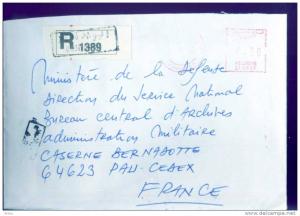 R
1389
Ministère de la Défense
Direction du Service National
Bureau central d'Archives
administration Militaire
CASERNE BERNADOTTE
64623 PAU-CEDEX
FRANCE